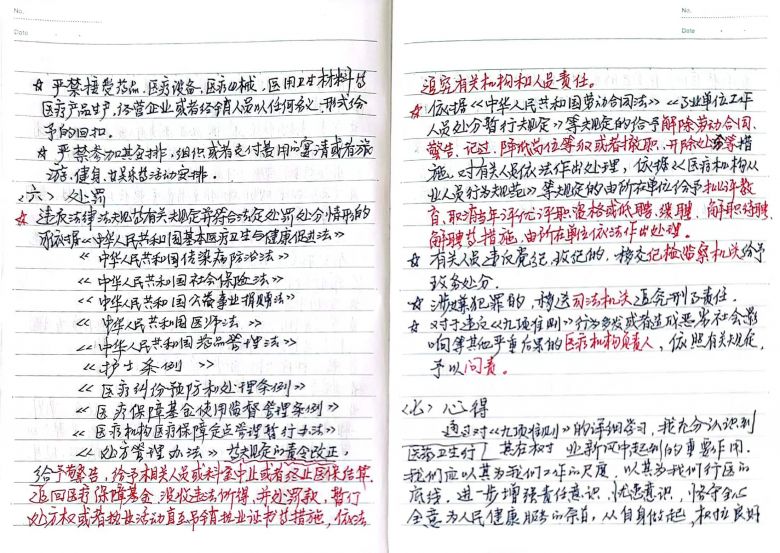 No.
Date
☆ 严禁接受药品、医疗设备、医疗器械、医用卫生材料等
医疗产品生产、经营企业或者经销人员以任何名义、形式给
予的回扣。
☆ 严禁参加其安排、组织或者支付费用的宴请或者旅
游、健身、娱乐等活动安排。
<六> 处罚
☆ 违反法律法规等有关规定并符合法定处罚处分情形的
须依据<<中华人民共和国基本医疗卫生与健康促进法>>
<<中华人民共和国传染病防治法>>
<<中华人民共和国社会保险法>>
<<中华人民共和国公益事业捐赠法>>
<<中华人民共和国医师法>>
<<中华人民共和国药品管理法>>
<<护士条例>>
<<医疗纠纷预防和处理条例>>
<<医疗保障基金使用监督管理条例>>
<<医疗机构医疗保障定点管理暂行办法>>
<<处方管理办法>> 等规定的责令改正,
给予警告,给予相关人员或科室中止或者终止医保结算、
追回医疗保障基金、没收违法所得、并处罚款、暂停
处方权或者执业活动直至吊销执业证书等措施,依法
No.
Date
追究有关机构和人员责任。
☆ 依据<<中华人民共和国劳动合同法>><<事业单位工作
人员处分暂行规定>>等规定的给予解除劳动合同、
警告、记过、降低岗位等级或者撤职、开除处分等措
施。对有关人员依法作出处理,依据<<医疗机构从
业人员行为规范>>等规定的由所在单位给予批评教
育、取消当年评优评职资格或低聘、缓聘、解职待聘、
解聘等措施,由所在单位依法作出处理。
☆ 有关人员违反党纪、政纪的,移交纪检监察机关给予
政务处分。
☆ 涉嫌犯罪的,移送司法机关追究刑事责任.
☆ 对于违反<<九项准则>>行为多发或者造成恶劣社会影
响等其他严重后果的医疗机构负责人,依照有关规定,
予以问责。
<七> 心得
通过对<<九项准则>>的详细学习,我充分认识到
医药卫生行 其在权对 业新风中起到的重要作用.
我们应以其为我们工作的尺度,以其为我们行医的
底线,进一步增强责任意识、忧患意识,恪守全心
全意为人民健康服务的宗旨,从自身做起,树立良好